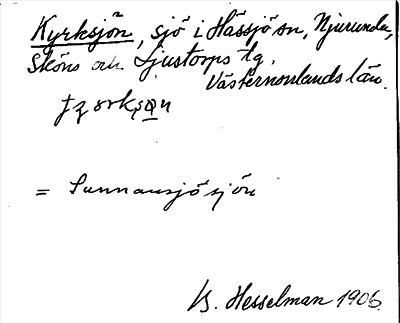 Kyrksjön, sjö i Hässjö sn, Njurunda,
Sköns och Ljustorps tg.
Västernorrlands län.
= Sunnansjösjön
B. Hesselman 1906.